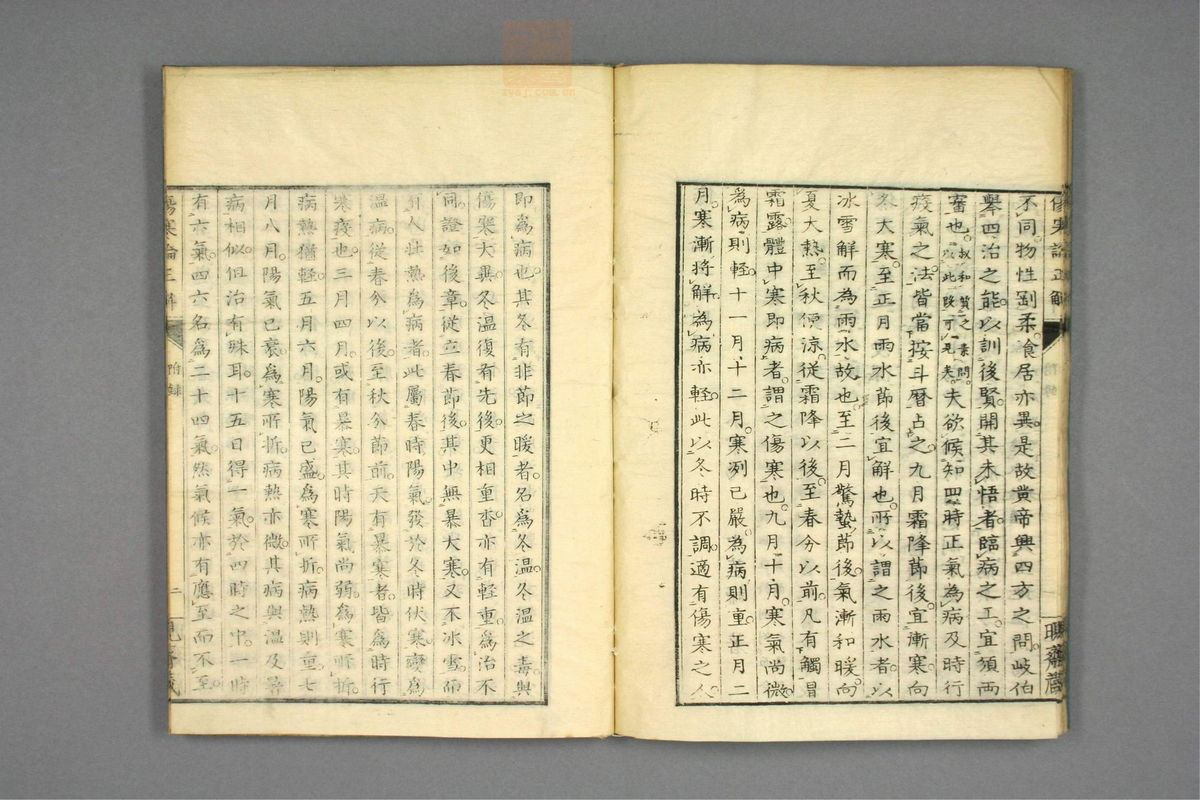 不同。物性剛柔。飡居亦異。是故黄帝興四方之問。岐伯
舉四治之能。以訓後賢。開其未悟者。臨病之工。宜須両
審也。叔和賛之素問。
以此既可見矣。夫欲候知四時正氣為病及時行
疫氣之法。皆當按斗暦占之。九月霜降節後。宜漸寒。向
冬大寒。至正月雨水節後。宜解也。所以謂之雨水者。以
冰雪解而為雨水故也。至二月驚蟄節後。氣漸和暖。向
夏大熱。至秋便涼。従霜降以後。至春分以前。凡有觸冒
霜露。體中寒即病者。謂之傷寒也。九月十月。寒氣尚微。
為病則軽。十一月十二月。寒冽已嚴。為病則重。正月二
月。寒漸将解。為病亦軽。此以冬時不調。適有傷寒之人
即為病也。其冬有非節之暖者。名為冬温。冬温之毒。與
傷寒大異。冬温復有先後。更相重沓。亦有軽重。為治不
同。證如後章。従立春節後。其中無暴大寒。又不冰雪。而
有人壮熱為病者。此屬春時陽氣。發於冬時伏寒。變為
温病。従春分以後。至秋分節前。天有暴寒者。皆為時行
寒疫也。三月四月。或有暴寒。其時陽氣尚弱。為寒所折。
病熱猶軽。五月六月。陽氣已盛。為寒所折。病熱則重。七
月八月。陽氣已衰。為寒所折。病熱亦微。其病與温及暑
病相似。但治有殊耳。十五日得一氣。於四時之中。一時
有六氣。四六名為二十四氣。然氣候亦有應至而不至
傷寒論正解
附録
二
聴齋蔵
傷寒論正解
聴齋蔵
zysj.com.cn